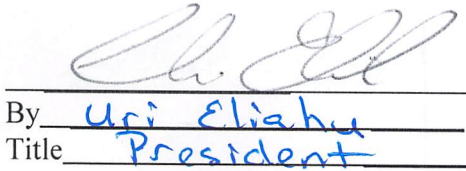 By Uri Eliahu
Title President